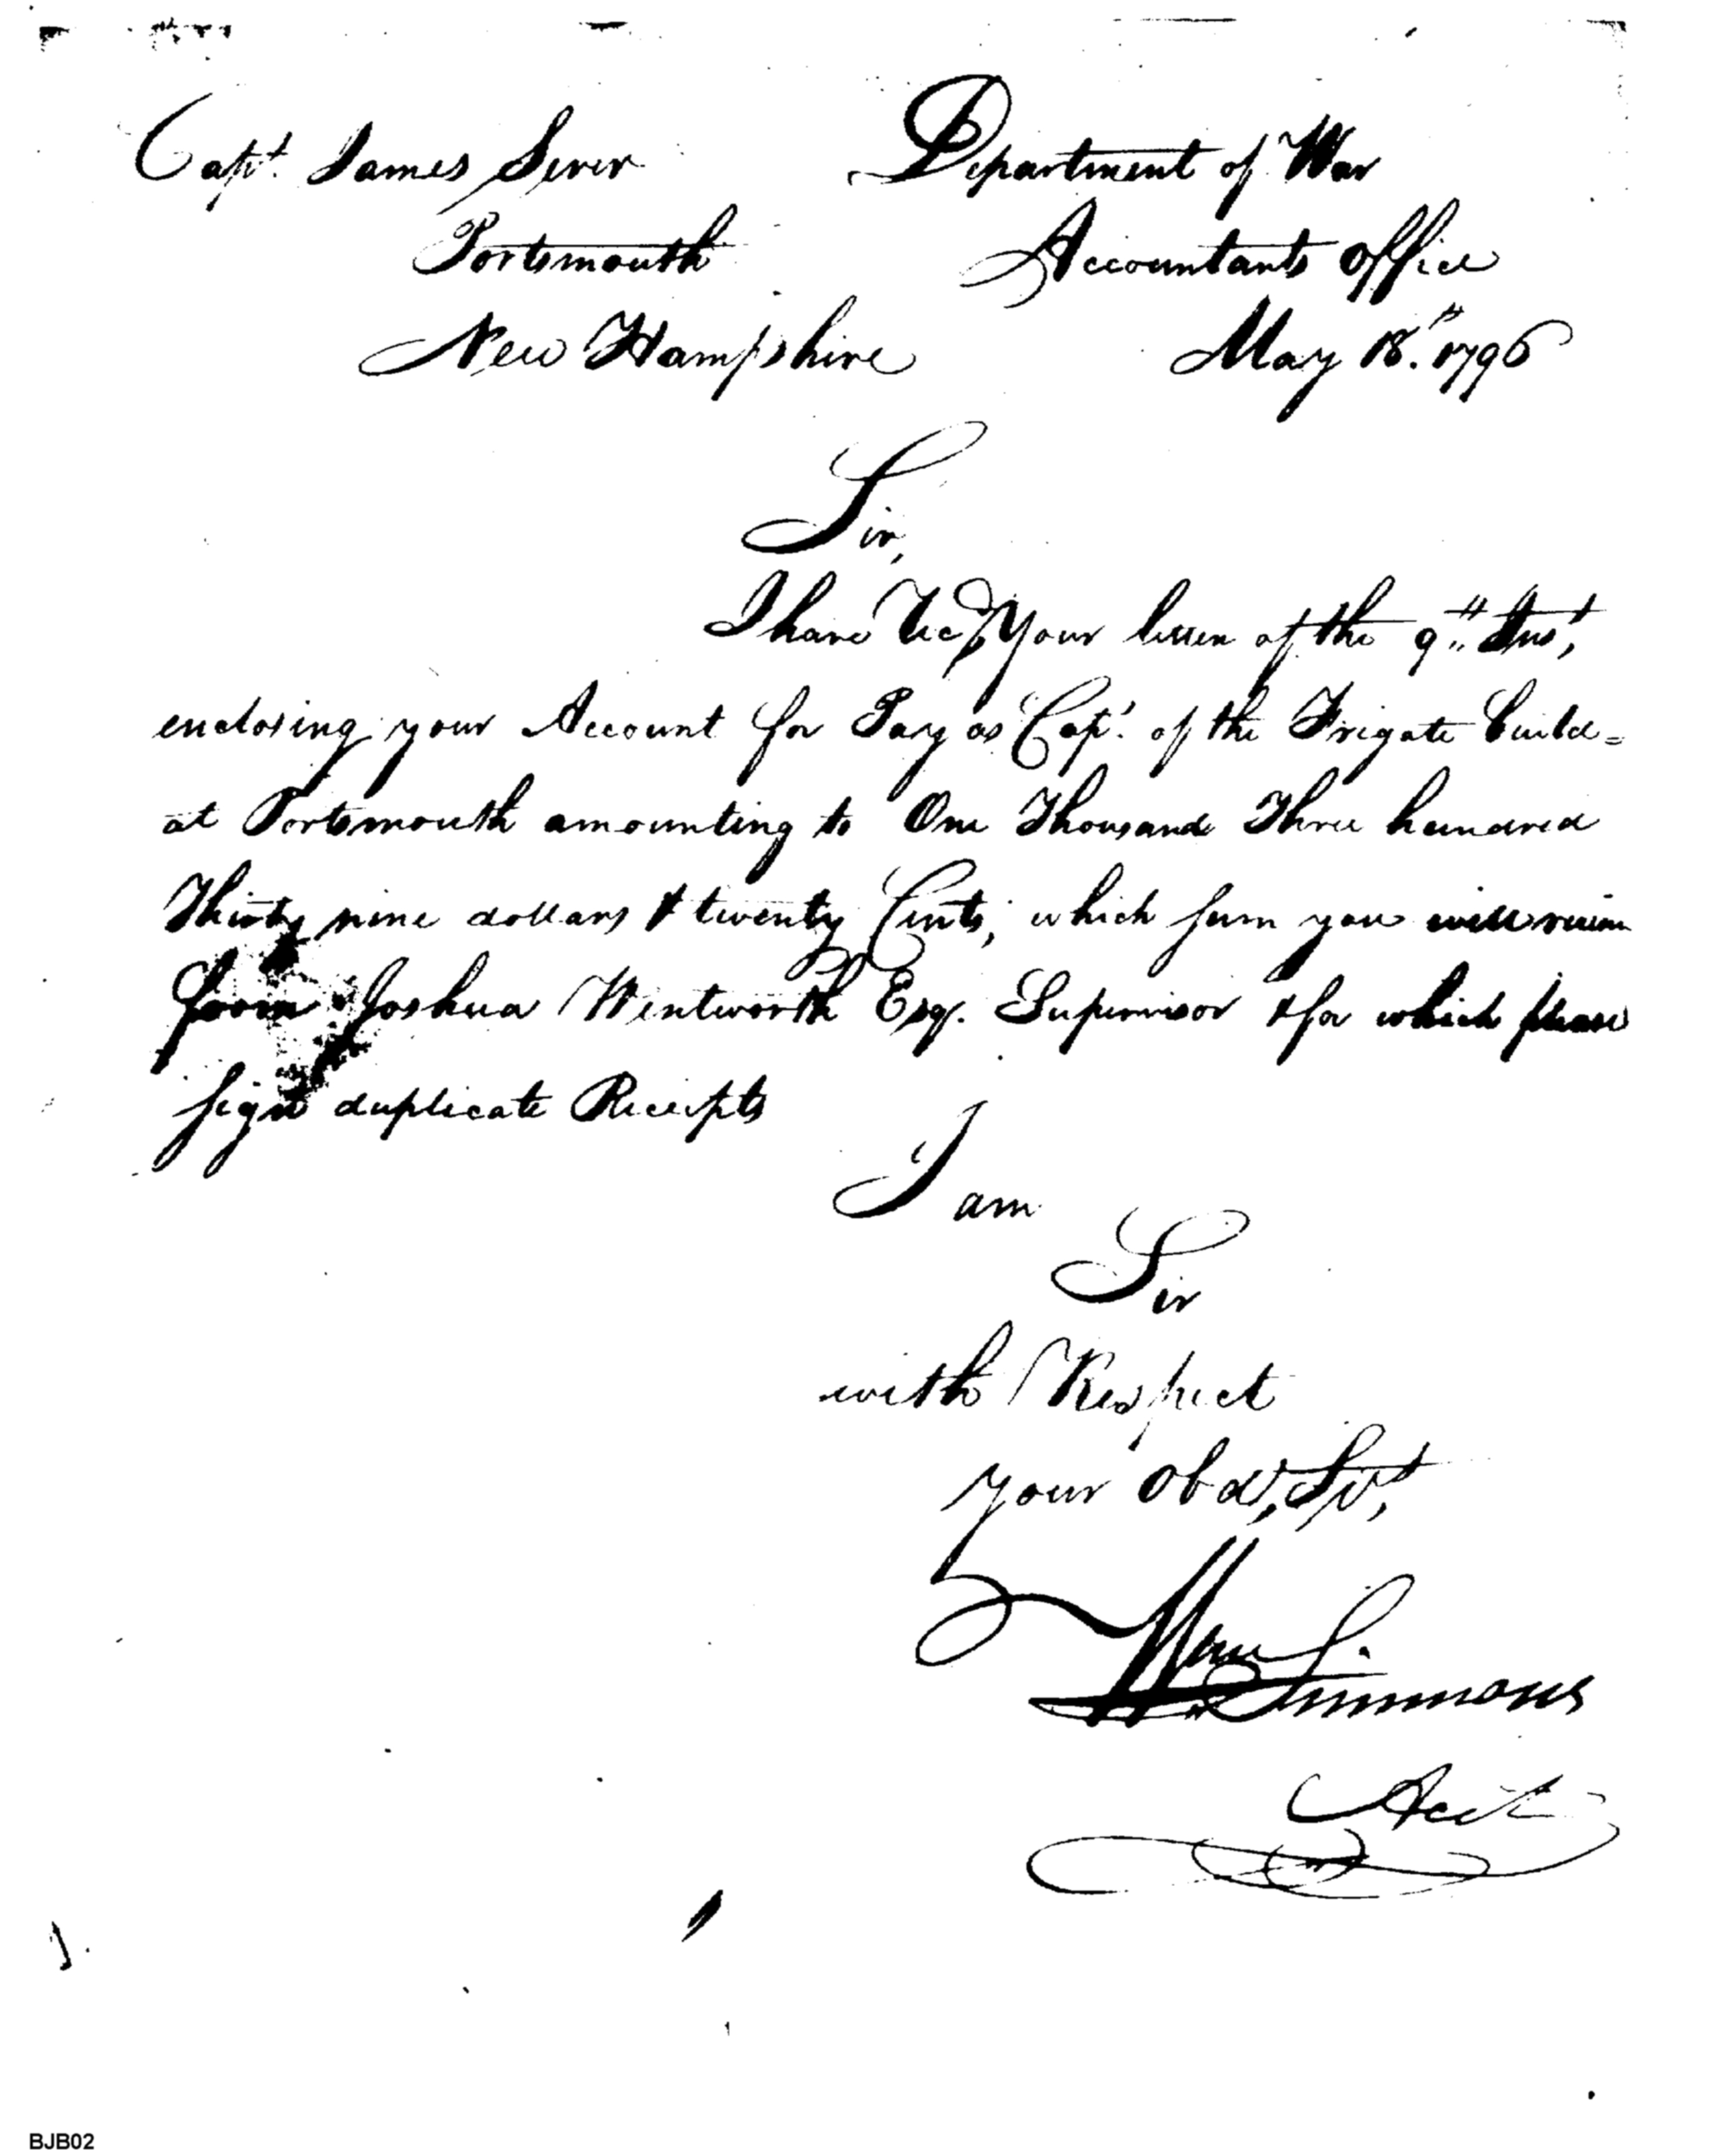 Capt. James Sever
Portsmouth
New Hampshire
Department of War
Accountants Office
May 18th. 1796
Sir,
I have Rec'd Your letter of the 9th Inst,
enclosing your Account for Pay as Capt. of the Frigate build=
at Portsmouth amounting to One Thousand Three hundred
Thirty nine dollars & twenty Cents, which sum you will receive
from Joshua Wentworth Esqr. Supervisor & for which please
sign duplicate Receipts
I am
Sir
with Respect
your Obdt, Svt,
Wm Simmons
Acct
BJB02